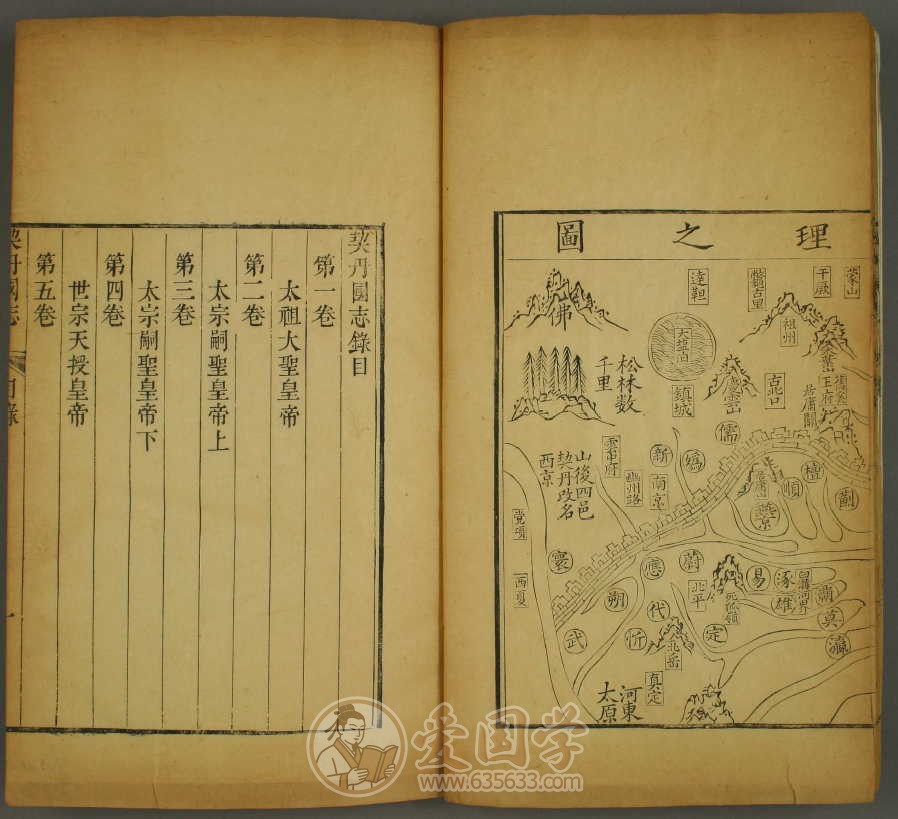 理之圖
蒙山
于厥
祖州
古北口
居庸關
達靼
大鹽泊
鎮城
慶雲山
佛
松林数
千里
儒
檀
順
薊
媯
新
南京
燕京
居庸山
雲中府
幽州路
山後四邑
契丹改名
西京
党項
西夏
寰
應
蔚
朔
武
代
忻
北平
易
涿
雄
白溝河界
霸
莫
瀛
定
北岳
真定
河東
太原
契丹國志錄目
第一卷
太祖大聖皇帝
第二卷
太宗嗣聖皇帝上
第三卷
太宗嗣聖皇帝下
第四卷
世宗天授皇帝
第五卷
契丹國志
目錄
一
爱国学
www.635633.com